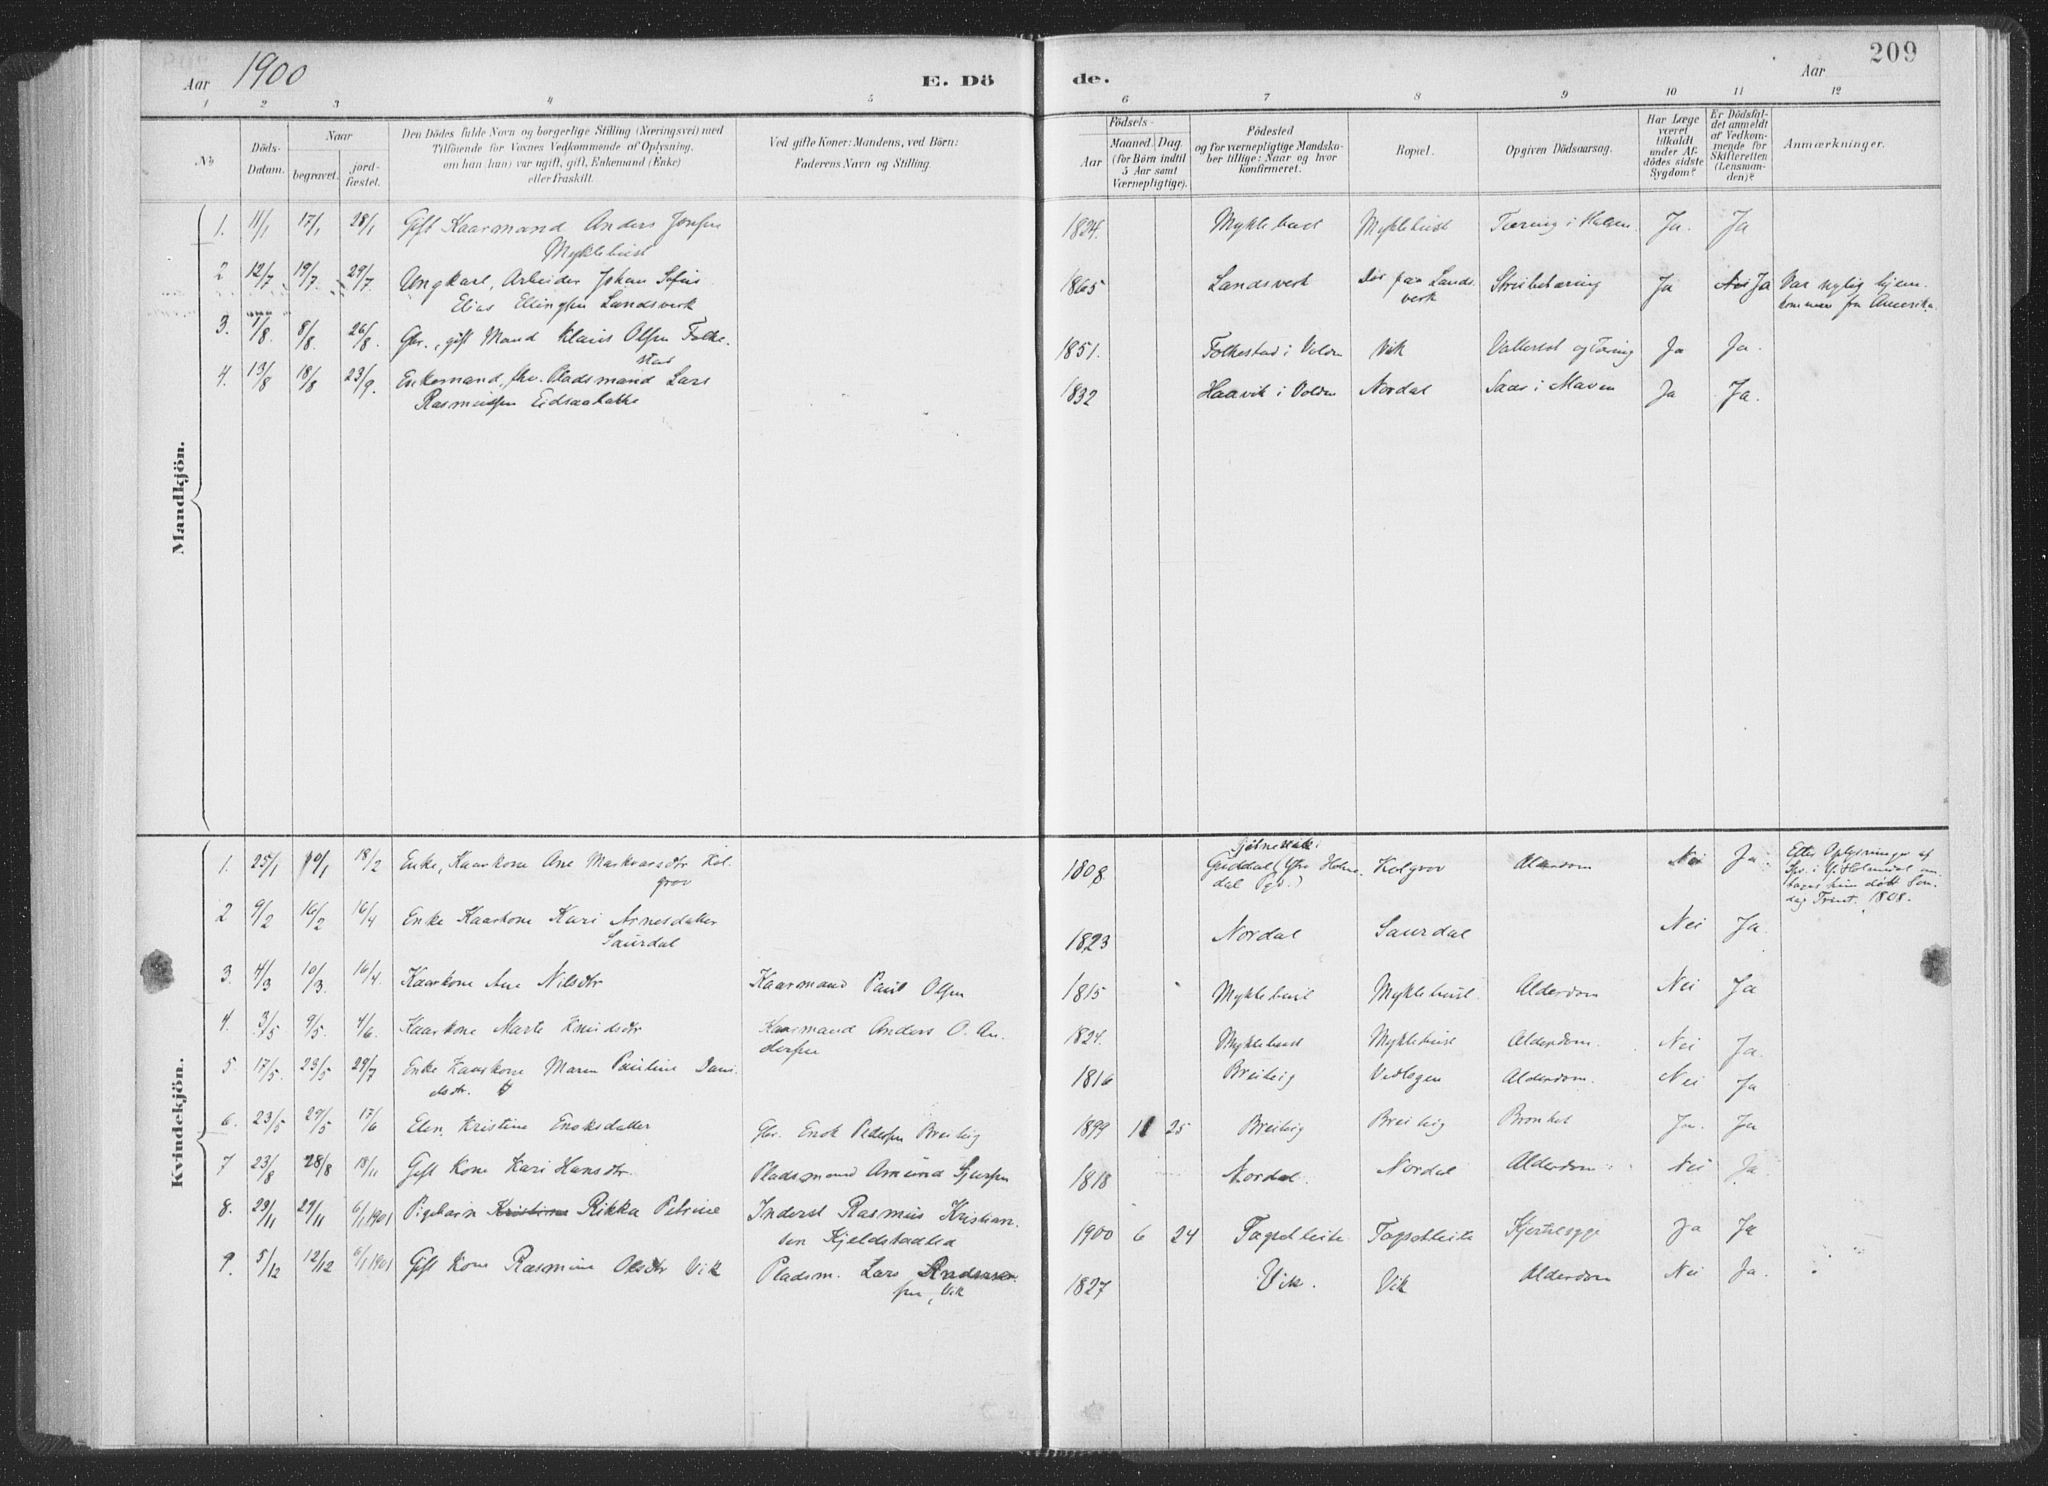 Aar 1900
E. Dö
de.
Aar
209
1 2 3 4 5 6 7 8 9 10 11 12
No
Döds-
Datum.
Naar
begravet.
jord-
fæstet.
Den Dödes fulde Navn og borgerlige Stilling (Næringsvei) med
Tilföiende for Voxnes Vedkommende af Oplysning,
om han (hun) var ugift, gift, Enkemand (Enke)
eller fraskilt.
Ved gifte Koner: Mandens, ved Börn:
Faderens Navn og Stilling.
Födsels-
Aar
Maaned Dag
(for Börn indtil
5 Aar samt
Værnepligtige).
Födested
og for værnepligtige Mandska-
ber tillige: Naar og hvor
konfirmeret.
Bopæl.
Opgiven Dödsaarsag.
Har Læge
været
tilkaldt
under Af-
dödes sidste
Sygdom?
Er Dödsfal-
det anmeldt
af Vedkom-
mende for
Skifteretten
(Lensman-
den)?
Anmærkninger.
Mandkjön.
1. 11/1 17/1 28/1 Gift Kaarmand Anders Jonsen 1824. Myklebust Myklebust Tæring i Halsen. Ja. Ja
Myklebust
2 12/7 19/7 29/7 Ungkarl, Arbeider Johan Sofus 1865 Landsverk Dør paa Lands- Strubetæring Ja Nei Ja Var nylig hjem-
Elias Ellingsen Landsverk verk kommen fra Amerika.
3. 1/8 8/8 26/8 Gbr., gift Mand Klaus Olsen Folke- 1851. Folkestad i Volden Vik Vattersot og Tæring Ja Ja.
stad
4. 13/8 18/8 23/9. Enkemand, fhv. Pladsmand Lars 1832 Haavik i Volden Nordal Saar i Maven Ja Ja.
Rasmussen Eidsaabakke
Kvindekjön.
1. 25/1 10/1 18/2 Enke, Kaarkone Ane Markvarsdtr Kol- 1808 Guddal (Ytre Holme- Kolgrov Alderdom Nei Ja. Efter Oplysninger af
grov dal Pgd.)
dag Trint. 1808.
2 9/2 16/2 16/4 Enke Kaarkone Kari Arnesdatter 1823 Nordal Saurdal Nei Ja.
Saurdal
3. 4/3 10/3. 16/4. Kaarkone Ane Nilsdtr Kaarmand Paul Olsen 1815 Myklebust Myklebust. Alderdom Nei Ja
4. 3/5 9/5. 4/6. Kaarkone Marte Knudsdtr Kaarmand Anders O. An- 1824. Myklebust Myklebust Alderdom. Nei Ja.
dersen
5. 17/5. 23/5 29/7 Enke Kaarkone Maren Pauline Dani- 1816 Breiteig Vedlogen Alderdom. Nei Ja
elsdtr.
6. 23/5 29/5 17/6 Elen Kristine Enoksdatter Gbr. Enok Pedersen Breiteig 1899 11 25 Breiteig Breiteig Bronkit Ja. Ja
7 23/8 28/8 18/11 Gift Kone Kari Hansdtr. Pladsmand Amund Sjursen 1818 Nordal. Nordal Alderdom. Nei Ja.
8. 23/11 29/11 6/1 1901 Pigebarn Kristine Rikka Petrine Inderst Rasmus Kristian- 1900 6 24 Tagsetleite Tagsetleite Kjertelsyge Ja Ja
sen Kjeldstadlid
9. 5/12 12/12 6/1 1901 Gift Kone Rasmine Olsdtr Vik Pladsm. Lars Anders- 1827 Vik. Vik Alderdom Nei Ja.
sen, Vik